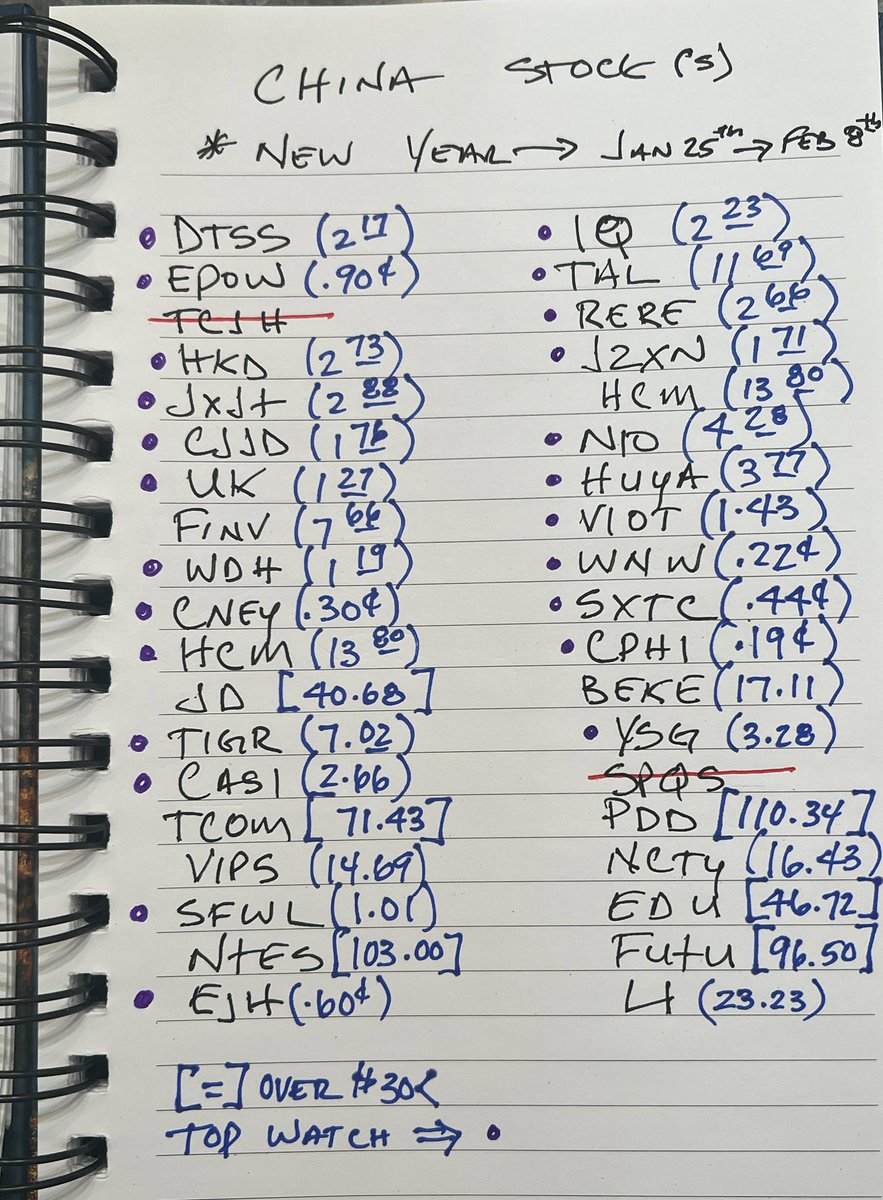 CHINA STOCK(S)
* NEW YEAR → JAN 25th → FEB 8th
• DTSS (2 17)
• EPOW (.90¢)
TCJH
• HKD (2 73)
• JXJT (2 88)
• CJJD (1 76)
• UK (1 27)
FINV (7 66)
• WDH (1 19)
• CNEY (.30¢)
• HCM (13 80)
JD [40.68]
• TIGR (7.02)
• CASI (2.66)
TCOM [71.43]
VIPS (14.69)
• SFWL (1.01)
NTES [103.00]
• EJH (.60¢)
• IQ (2 23)
• TAL (11 69)
• RERE (2 66)
• JZXN (1 71)
HCM (13 80)
• NIO (4 28)
• HUYA (3 77)
• VIOT (1.43)
• WNW (.22¢)
• SXTC (.44¢)
• CPHI (.19¢)
BEKE (17.11)
• YSG (3.28)
SPQS
PDD [110.34]
NCTY (16.43)
EDU [46.72]
FUTU [96.50]
LI (23.23)
[=] OVER $30<
TOP WATCH ⇒ •